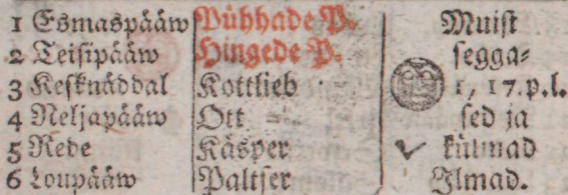 1 Esmaspääw Pühhade P. Muist
2 Teisipääw Hingede P. segga⸗
3 Kesknäddal Kottlieb 1, 17. p. l.
4 Neljapääw Ott sed ja
5 Rede Käsper külmad
6 Loupääw Paltser Ilmad.